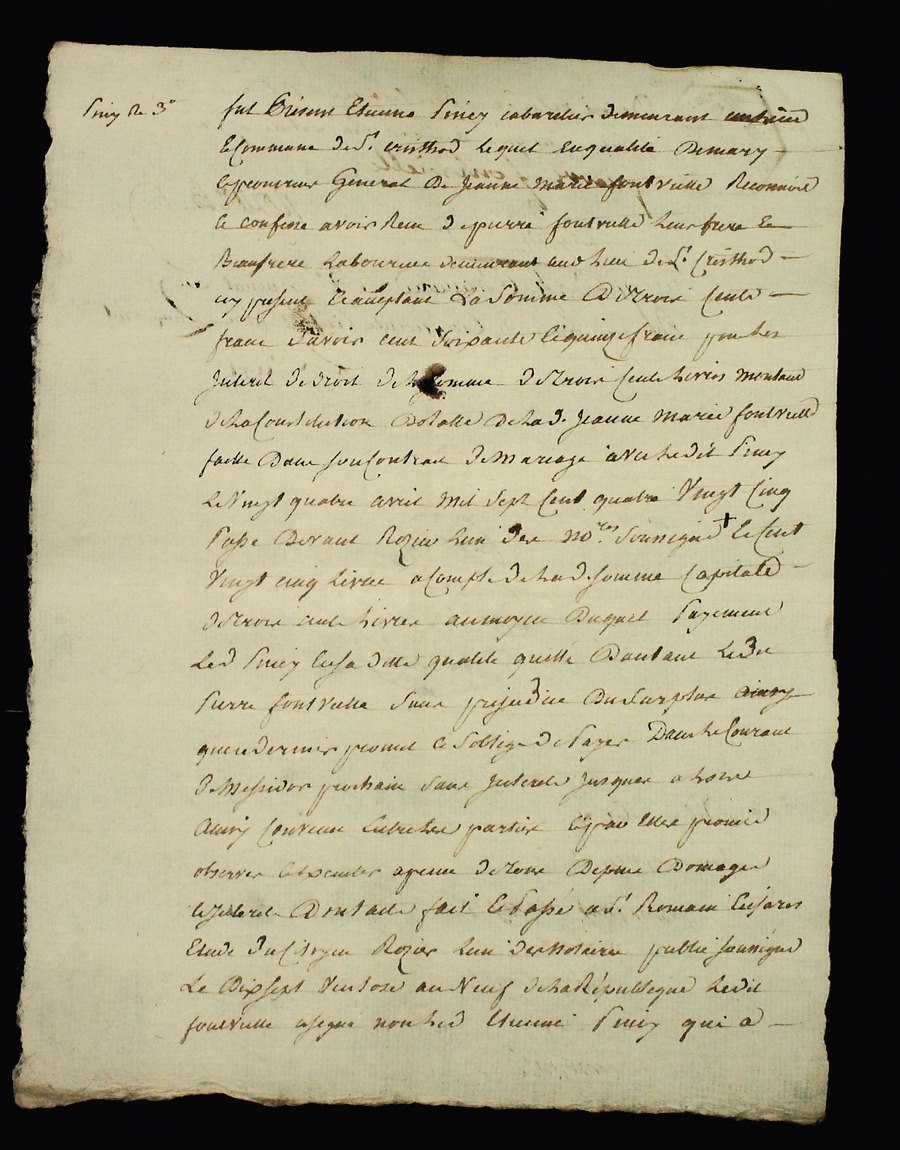 piney Re 3e
fut Présent Etienne piney cabaretier demeurant
Commune de St. Cristhod lequel en qualité de mary
et procureur General de Jeanne Marie fontvielle Reconnoit
et confesse avoir Reçu de pierre fontvielle leur frere et
Beaufrere Laboureur demeurant au Lieu de St. Cristhod
icy present et acceptant La Somme de Trois Cents
franc Savoir cent Soixante et quinze franc pour les
Interet de droit de la somme de Trois Cents Livres montant
de la Constitution Dotalle de lad. Jeanne Marie fontvielle
faitte Dans son Contrat de Mariage avec ledit piney
Le Vingt quatre avril Mil Sept Cent quatre Vingt Cinq
Passé Devant Rozier l'un des nores. Soussigné + et Cent
Vingt cinq Livres acompte de lad. somme Capitale
de Trois cents Livres au moyen Duquel payement
Led piney en sa ditte qualité quitte D'autant led
pierre fontvielle Sans prejudice du Surplus ainsy
que ce dernier promet et S'oblige de Payer Dans le Courant
de Messidor prochain Sans Interets jusques a lors
Ainsy Convenu Entre les parties et par Elles promis
observer et executer a peine de Tous Depens Domages
et Interets Dont acte fait et Passé a St. Romain En jarez
Etude du Citoyen Rozier L'un des Notaires public soussigné
Le Dix sept Ventose an Neuf de la République Ledit
fontvielle a signé non led Etienne piney qui a